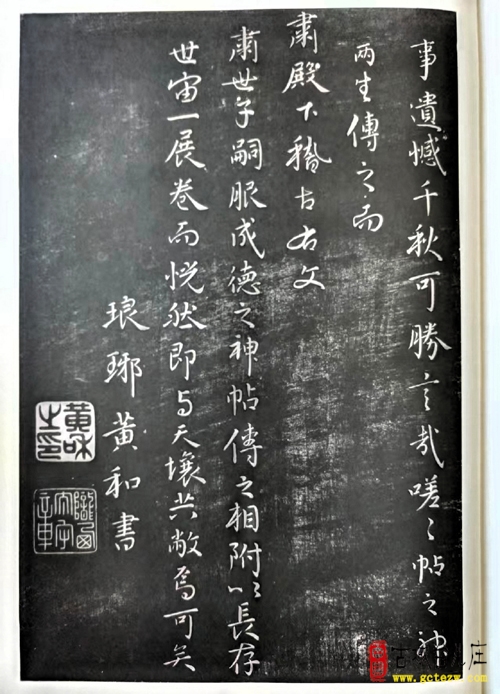 事遺憾千秋可勝言哉嗟々帖之神
兩生傳之而
肅殿下稽古右文
肅世子嗣服成德之神帖傳之相附以長存
世宙一展卷而恍然即与天壤共敝焉可矣
琅琊黄和書
黄和之印
www.gctezw.com